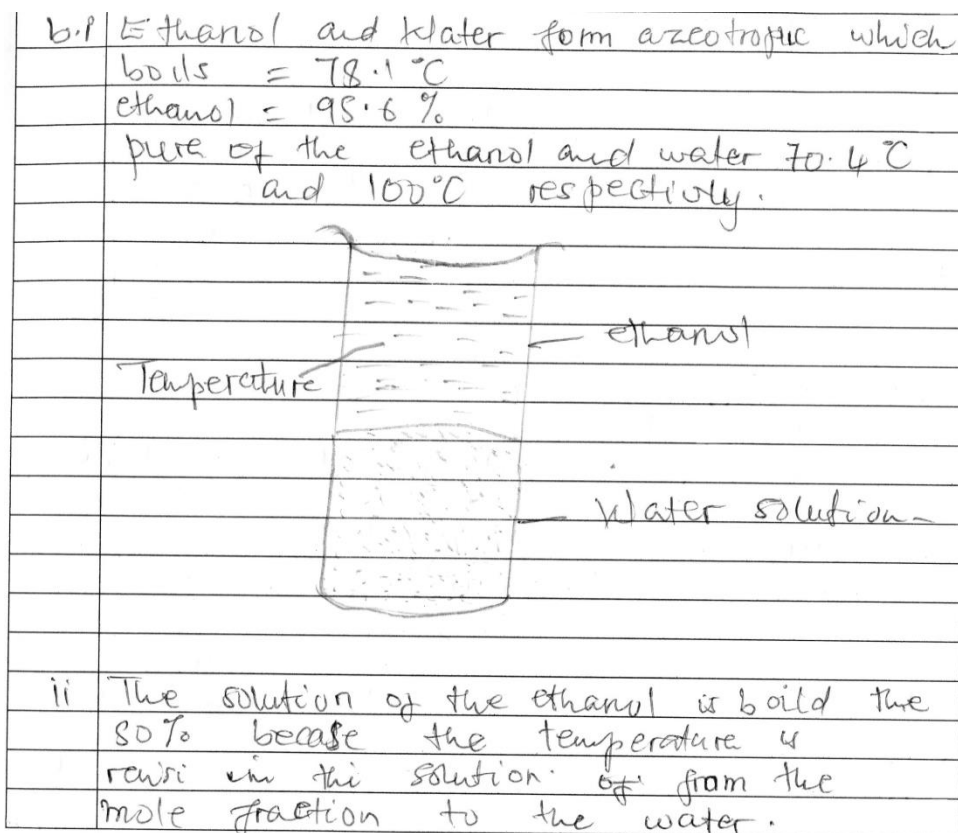 b.i Ethanol and Water form azeotropic which
boils = 78.1 °C
ethanol = 95.6 %
pure of the ethanol and water 70.4 °C
and 100°C respectivly.
ethanol
Temperature
Water solution
ii The solution of the ethanol is boild the
80% becase the temperature is
in thi solution. of from the
mole fraction to the water.